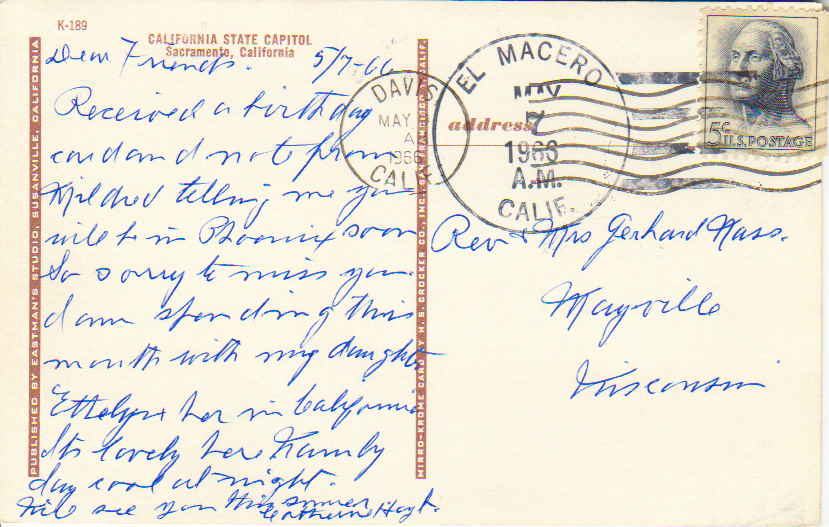 K-189
CALIFORNIA STATE CAPITOL
Sacramento, California
Dear Friends. 5/7-66
Received a birthday
card and note from
Mildred telling me you
will be in Phoenix soon
So sorry to miss you.
I am spending this
month with my daughter
her in California
Its lovely here
day cool at night.
Will see you this summer
Hoyt.
PUBLISHED BY EASTMAN'S STUDIO, SUSANVILLE, CALIFORNIA
MIRRO-KROME CARD BY H. S. CROCKER CO., INC., SAN FRANCISCO, CALIF.
DAVIS
MAY
A
1966
CALIF.
address
EL MACERO
MAY
7
1966
A.M.
CALIF.
5¢ U.S. POSTAGE
Rev & Mrs Gerhard Nass.
Mayville
Wisconsin